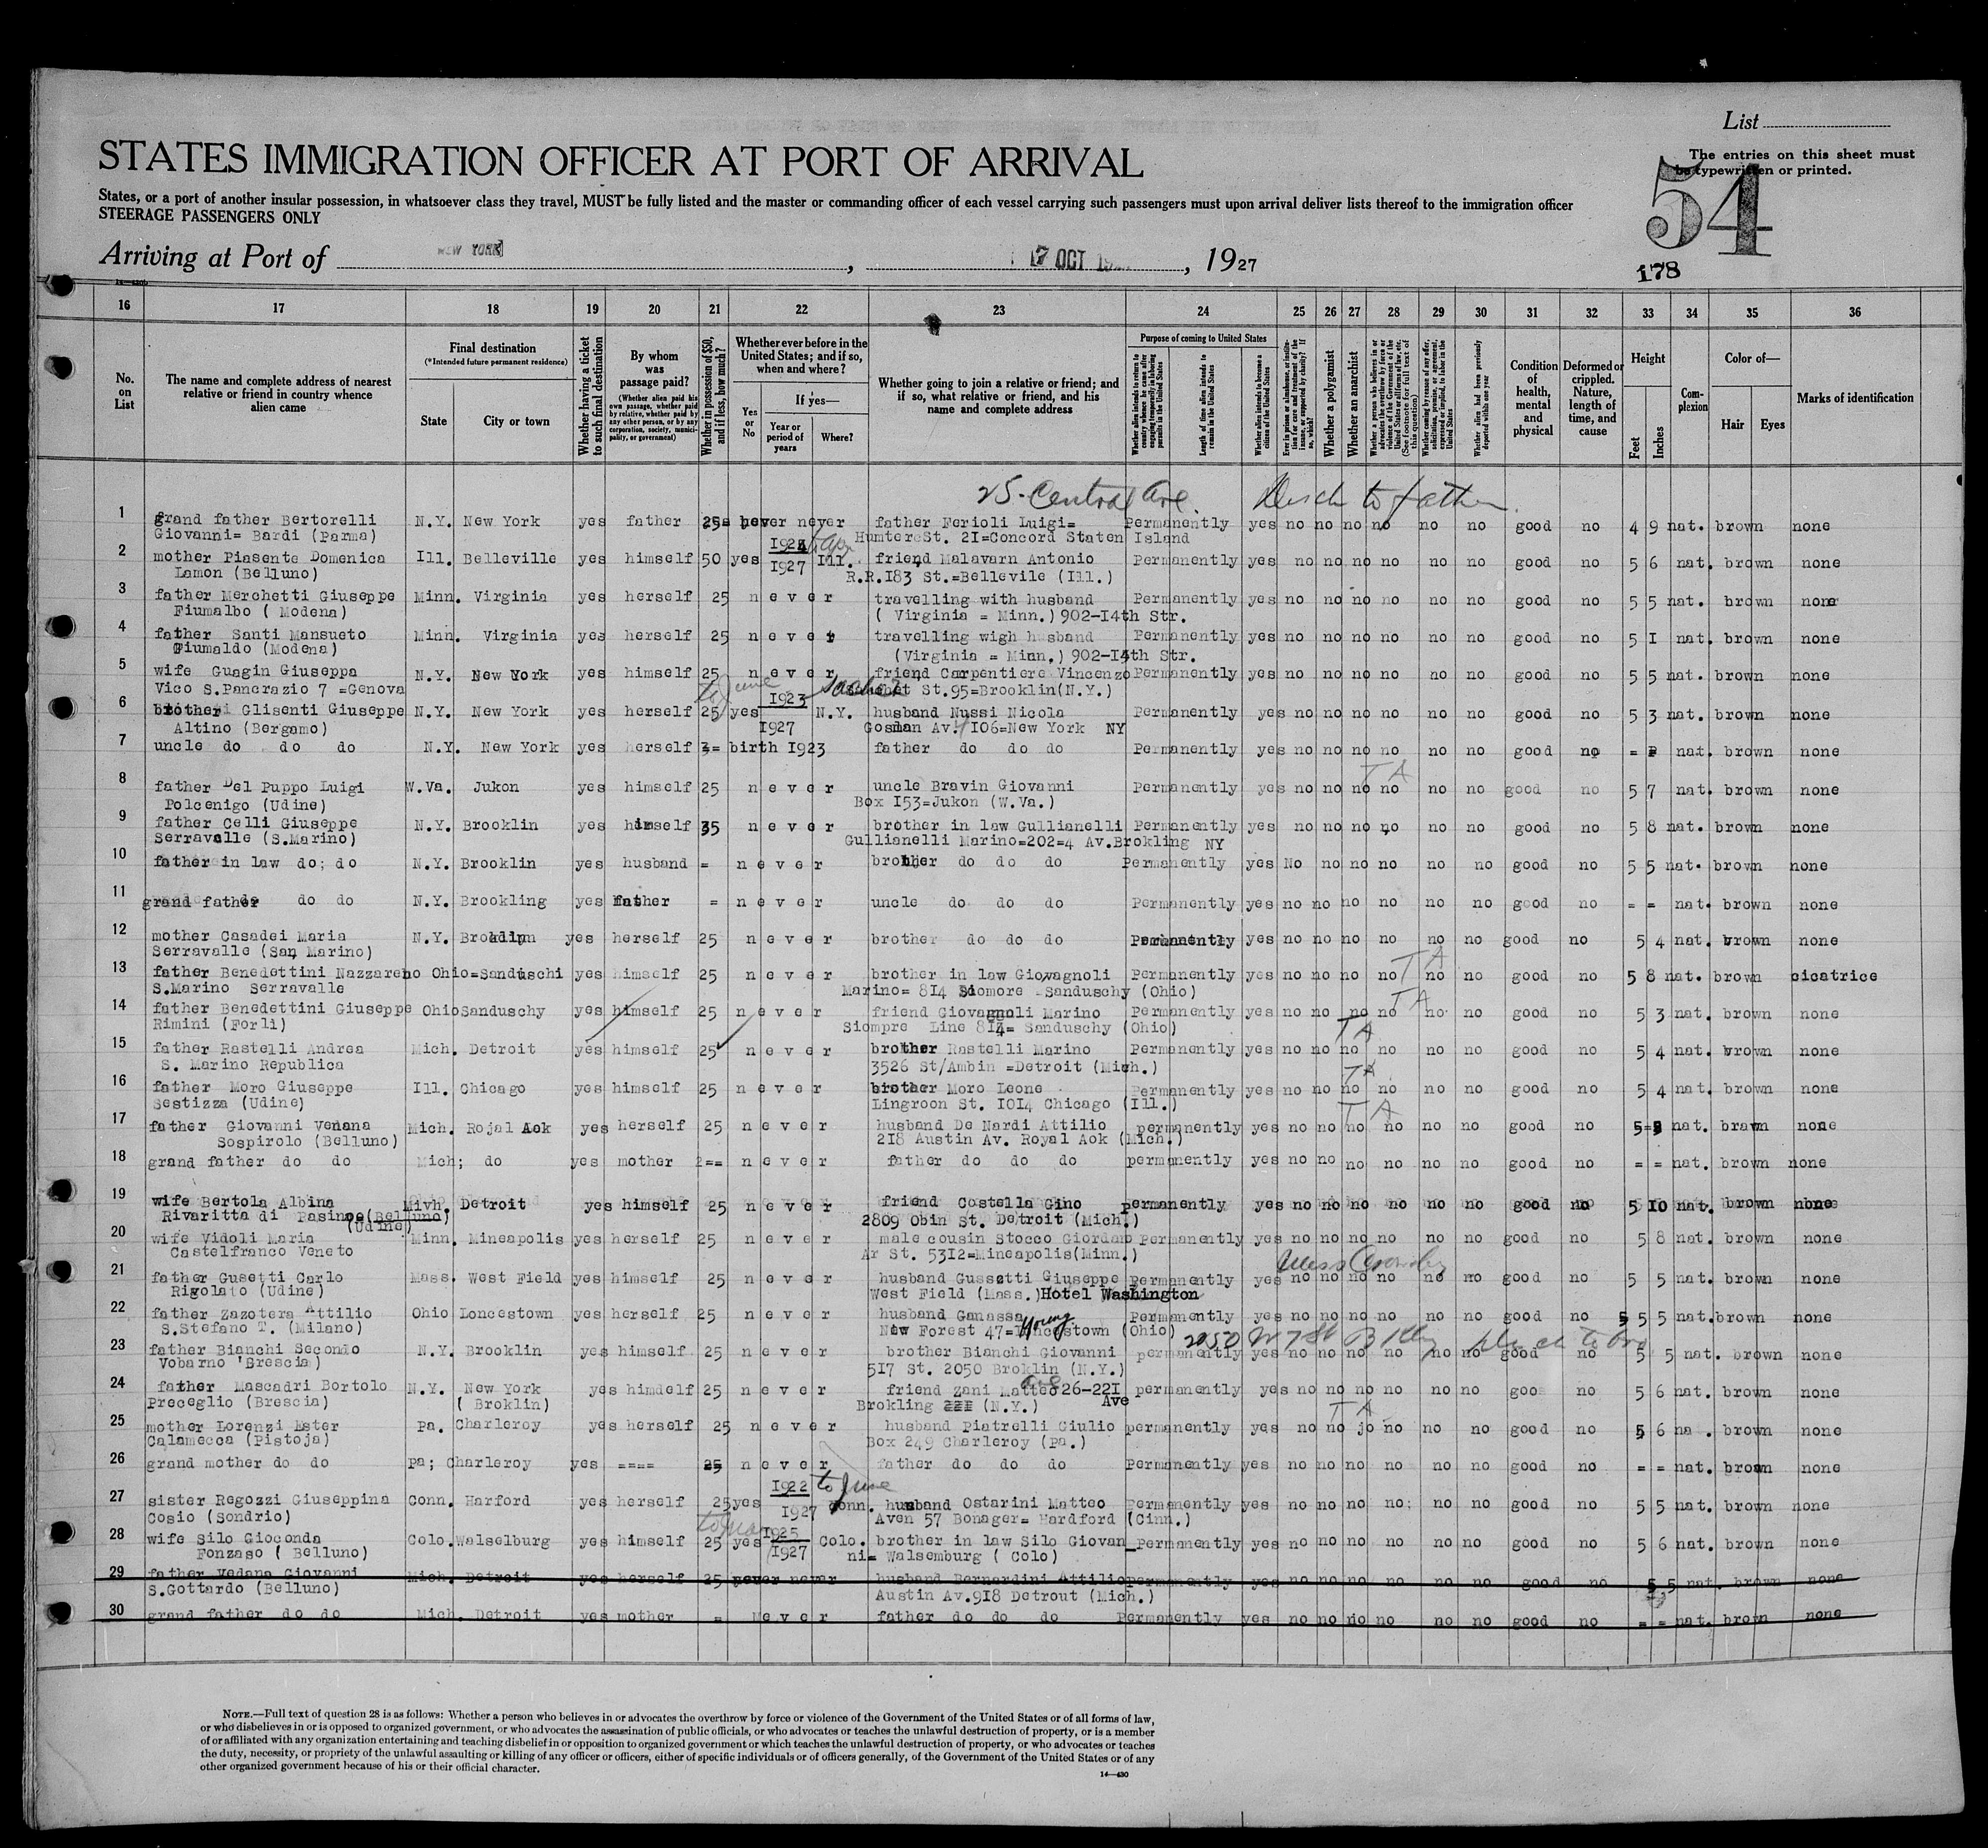 List
The entries on this sheet must
be typewritten or printed.
54
178
STATES IMMIGRATION OFFICER AT PORT OF ARRIVAL
States, or a port of another insular possession, in whatsoever class they travel, MUST be fully listed and the master or commanding officer of each vessel carrying such passengers must upon arrival deliver lists thereof to the immigration officer
STEERAGE PASSENGERS ONLY
Arriving at Port of NEW YORK , 17 OCT , 1927
16 17 18 19 20 21 22 23 24 25 26 27 28 29 30 31 32 33 34 35 36
No. on List
The name and complete address of nearest relative or friend in country whence alien came
Final destination
(*Intended future permanent residence)
State City or town
Whether having a ticket to such final destination
By whom was passage paid?
(Whether alien paid his own passage, whether paid by relative, whether paid by any other person, or by any corporation, society, municipality, or government)
Whether in possession of $50, and if less, how much?
Whether ever before in the United States; and if so, when and where?
Yes or No
If yes—
Year or period of years Where?
Whether going to join a relative or friend; and if so, what relative or friend, and his name and complete address
Purpose of coming to United States
Length of time alien intends to remain in the United States
Whether alien intends to become a citizen of the United States
Whether a polygamist
Whether an anarchist
Whether alien had been previously deported within one year
Condition of health, mental and physical
Deformed or crippled. Nature, length of time, and cause
Height
Feet Inches
Complexion
Color of—
Hair Eyes
Marks of identification
25 Central Ave. Disch to father
1 grand father Bertorelli N.Y. New York yes father 25= never never father Ferioli Luigi= Permanently yes no no no no no no good no 4 9 nat. brown none
Giovanni= Bardi (Parma) Humter St. 21=Concord Staten Island
2 mother Piasente Domenica Ill. Belleville yes himself 50 yes 1927 Ill. friend Malavarn Antonio Permanently yes no no no no no no good no 5 6 nat. brown none
Lamon (Belluno) R.R.183 St.=Bellevile (Ill.)
3 father Merchetti Giuseppe Minn. Virginia yes herself 25 never travelling with husband Permanently yes no no no no no no good no 5 5 nat. brown none
Fiumalbo ( Modena) ( Virginia = Minn.) 902-14th Str.
4 father Santi Mansueto Minn. Virginia yes herself 25 never travelling wigh husband Permanently yes no no no no no no good no 5 1 nat. brown none
Fiumaldo (Modena) (Virginia = Minn.) 902-14th Str.
5 wife Guagin Giuseppa N.Y. New York yes himself 25 never friend Carpentiere Vincenzo Permanently yes no no no no no no good no 5 5 nat. brown none
Vico S.Pancrazio 7 =Genova St.95=Brooklin(N.Y.)
to June 1923
6 brother Glisenti Giuseppe N.Y. New York yes herself 25 yes N.Y. husband Nussi Nicola Permanently yes no no no no no no good no 5 3 nat. brown none
Altino (Bergamo) 1927 Av. 106=New York NY
7 uncle do do do N.Y. New York yes herself 3= birth 1923 father do do do Permanently yes no no no no no no good no = = nat. brown none
T A
8 father Del Puppo Luigi W.Va. Jukon yes himself 25 never uncle Bravin Giovanni Permanently yes no no no no no no good no 5 7 nat. brown none
Polcenigo (Udine) Box 153=Jukon (W.Va.)
9 father Celli Giuseppe N.Y. Brooklin yes himself 35 never brother in law Gullianelli Permanently yes no no no no no no good no 5 8 nat. brown none
Serravalle (S.Marino) Gullianelli Marino=202=4 Av.Brokling NY
10 father in law do; do N.Y. Brooklin yes husband = never brother do do do Permanently yes No no no no no no good no 5 5 nat. brown none
11 grand father do do N.Y. Brookling yes father = never uncle do do do Permanently yes no no no no no no good no = = nat. brown none
12 mother Casadei Maria N.Y. yes herself 25 never brother do do do Permanently yes no no no no no no good no 5 4 nat. brown none
Serravalle (San Marino)
T A
13 father Benedettini Nazzareno Ohio=Sanduschi yes himself 25 never brother in law Giovagnoli Permanently yes no no no no no no good no 5 8 nat. brown cicatrice
S.Marino Serravalle Marino= 814 Siomore Sanduschy (Ohio)
T A
14 father Benedettini Giuseppe Ohio Sanduschy yes himself 25 never friend Giovagnoli Marino Permanently yes no no no no no no good no 5 3 nat. brown none
Rimini (Forli) Siompre Line 814= Sanduschy (Ohio)
T A
15 father Rastelli Andrea Mich. Detroit yes himself 25 never brother Rastelli Marino Permanently yes no no no no no no good no 5 4 nat. brown none
S. Marino Republica 3526 St/Ambin =Detroit (Mich.)
T A
16 father Moro Giuseppe Ill. Chicago yes himself 25 never brother Moro Leone Permanently yes no no no no no no good no 5 4 nat. brown none
Sestizza (Udine) Lingroon St. 1014 Chicago (Ill.)
T A
17 father Giovanni Vedana Mich. Rojal Aok yes herself 25 never husband De Nardi Attilio permanently yes no no no no no no good no nat. brawn none
Sospirolo (Belluno) 218 Austin Av. Royal Aok (Mich.)
18 grand father do do Mich; do yes mother 2== never father do do do permanently yes no no no no no no good no = = nat. brown none
19 wife Bertola Albina Mivh. Detroit yes himself 25 never friend Costella Gino permanently yes no no no no no no good no 5 10 nat. brown none
Rivaritta di Pasinoo=(Belluno) 2809 Obin St. Detroit (Mich.)
(Udine)
20 wife Vidoli Maria Minn. Mineapolis yes herself 25 never male cousin Stocco Giordano Permanently yes no no no no no no good no 5 8 nat. brown none
Castelfranco Veneto Ar St. 5312=Mineapolis(Minn.)
21 father Gusetti Carlo Mass. West Field yes himself 25 never husband Gussetti Giuseppe permanently yes no no no no no no good no 5 5 nat. brown none
Rigolato (Udine) West Field (Mass.) Hotel Washington
22 father Zazotera Attilio Ohio Loncestown yes herself 25 never husband Ganassa Permanently yes no no no no no no good no 5 5 nat. brown none
S.Stefano T. (Milano) New Forest 47= Youngstown (Ohio) 2050 W 7 St Bklyn disch to bro
23 father Bianchi Secondo N.Y. Brooklin yes himself 25 never brother Bianchi Giovanni permanently yes no no no no no no good no 5 5 nat. brown none
Vobarno (Brescia) 517 St. 2050 Broklin (N.Y.)
24 father Mascadri Bortolo N.Y. New York yes himdelf 25 never friend Zani Matteo 26-221 Ave permanently yes no no no no no no goo no 5 6 nat. brown none
Preceglio (Brescia) ( Broklin) Brokling (N.Y.)
T A
25 mother Lorenzi Ester Pa. Charleroy yes herself 25 never husband Piatrelli Giulio permanently yes no no jo no no no good no 5 6 na . brown none
Calamecca (Pistoja) Box 249 Charleroy (Pa.)
26 grand mother do do Pa; Charleroy yes ==== 25 never father do do do Permanently yes no no no no no no good no = = nat. brown none
1922 to June
27 sister Regozzi Giuseppina Conn. Harford yes herself 25 yes 1927 Conn. husband Ostarini Matteo Permanently yes no no no no; no no good no 5 5 nat. brown none
Cosio (Sondrio) Aven 57 Bonager= Hardford (Cinn.)
1925
28 wife Silo Gioconda Colo. Walselburg yes himself 25 yes 1927 Colo. brother in law Silo Giovan_ Permanently yes no no no no no no good no 5 6 nat. brown none
Fonzaso ( Belluno) ni= Walsemburg ( Colo)
29 father Vedana Giovanni Mich. Detroit yes herself 25 never never husband Bernardini Attilio permanently yes no no no no no no good no 5 5 nat. brown none
S.Gottardo (Belluno) Austin Av.918 Detrout (Mich.)
30 grand father do do Mich. Detroit yes mother = never father do do do Permanently yes no no no no no no good no = = nat. brown none
NOTE.—Full text of question 28 is as follows: Whether a person who believes in or advocates the overthrow by force or violence of the Government of the United States or of all forms of law,
or who disbelieves in or is opposed to organized government, or who advocates the assassination of public officials, or who advocates or teaches the unlawful destruction of property, or is a member
of or affiliated with any organization entertaining and teaching disbelief in or opposition to organized government or which teaches the unlawful destruction of property, or who advocates or teaches
the duty, necessity, or propriety of the unlawful assaulting or killing of any officer or officers, either of specific individuals or of officers generally, of the Government of the United States or of any
other organized government because of his or their official character.
14—430